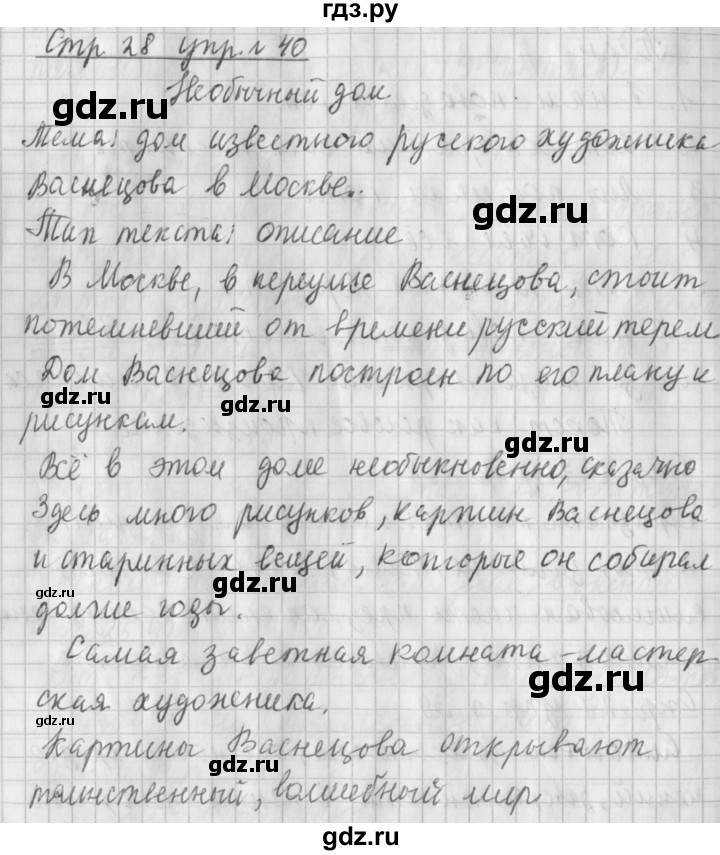 гдз.ру
Стр 28 упр. 40
Необычный дом
Тема: дом известного русского художника
Васнецова в Москве.
Тип текста: описание
В Москве, в переулке Васнецова, стоит
потемневший от времени русский терем
Дом Васнецова построен по его плану и
рисункам.
Всё в этом доме необыкновенно, сказачно
Здесь много рисунков, картин Васнецова
и старинных вещей, которые он собирал
долгие годы.
Самая заветная комната - мастер
ская художника.
Картины Васнецова открывают
таинственный, волшебный мир
gdz.ru
gdz.ru
gdz.ru
gdz.ru
gdz.ru
gdz.ru
gdz.ru
gdz.ru
gdz.ru
gdz.ru
gdz.ru
gdz.ru
gdz.ru